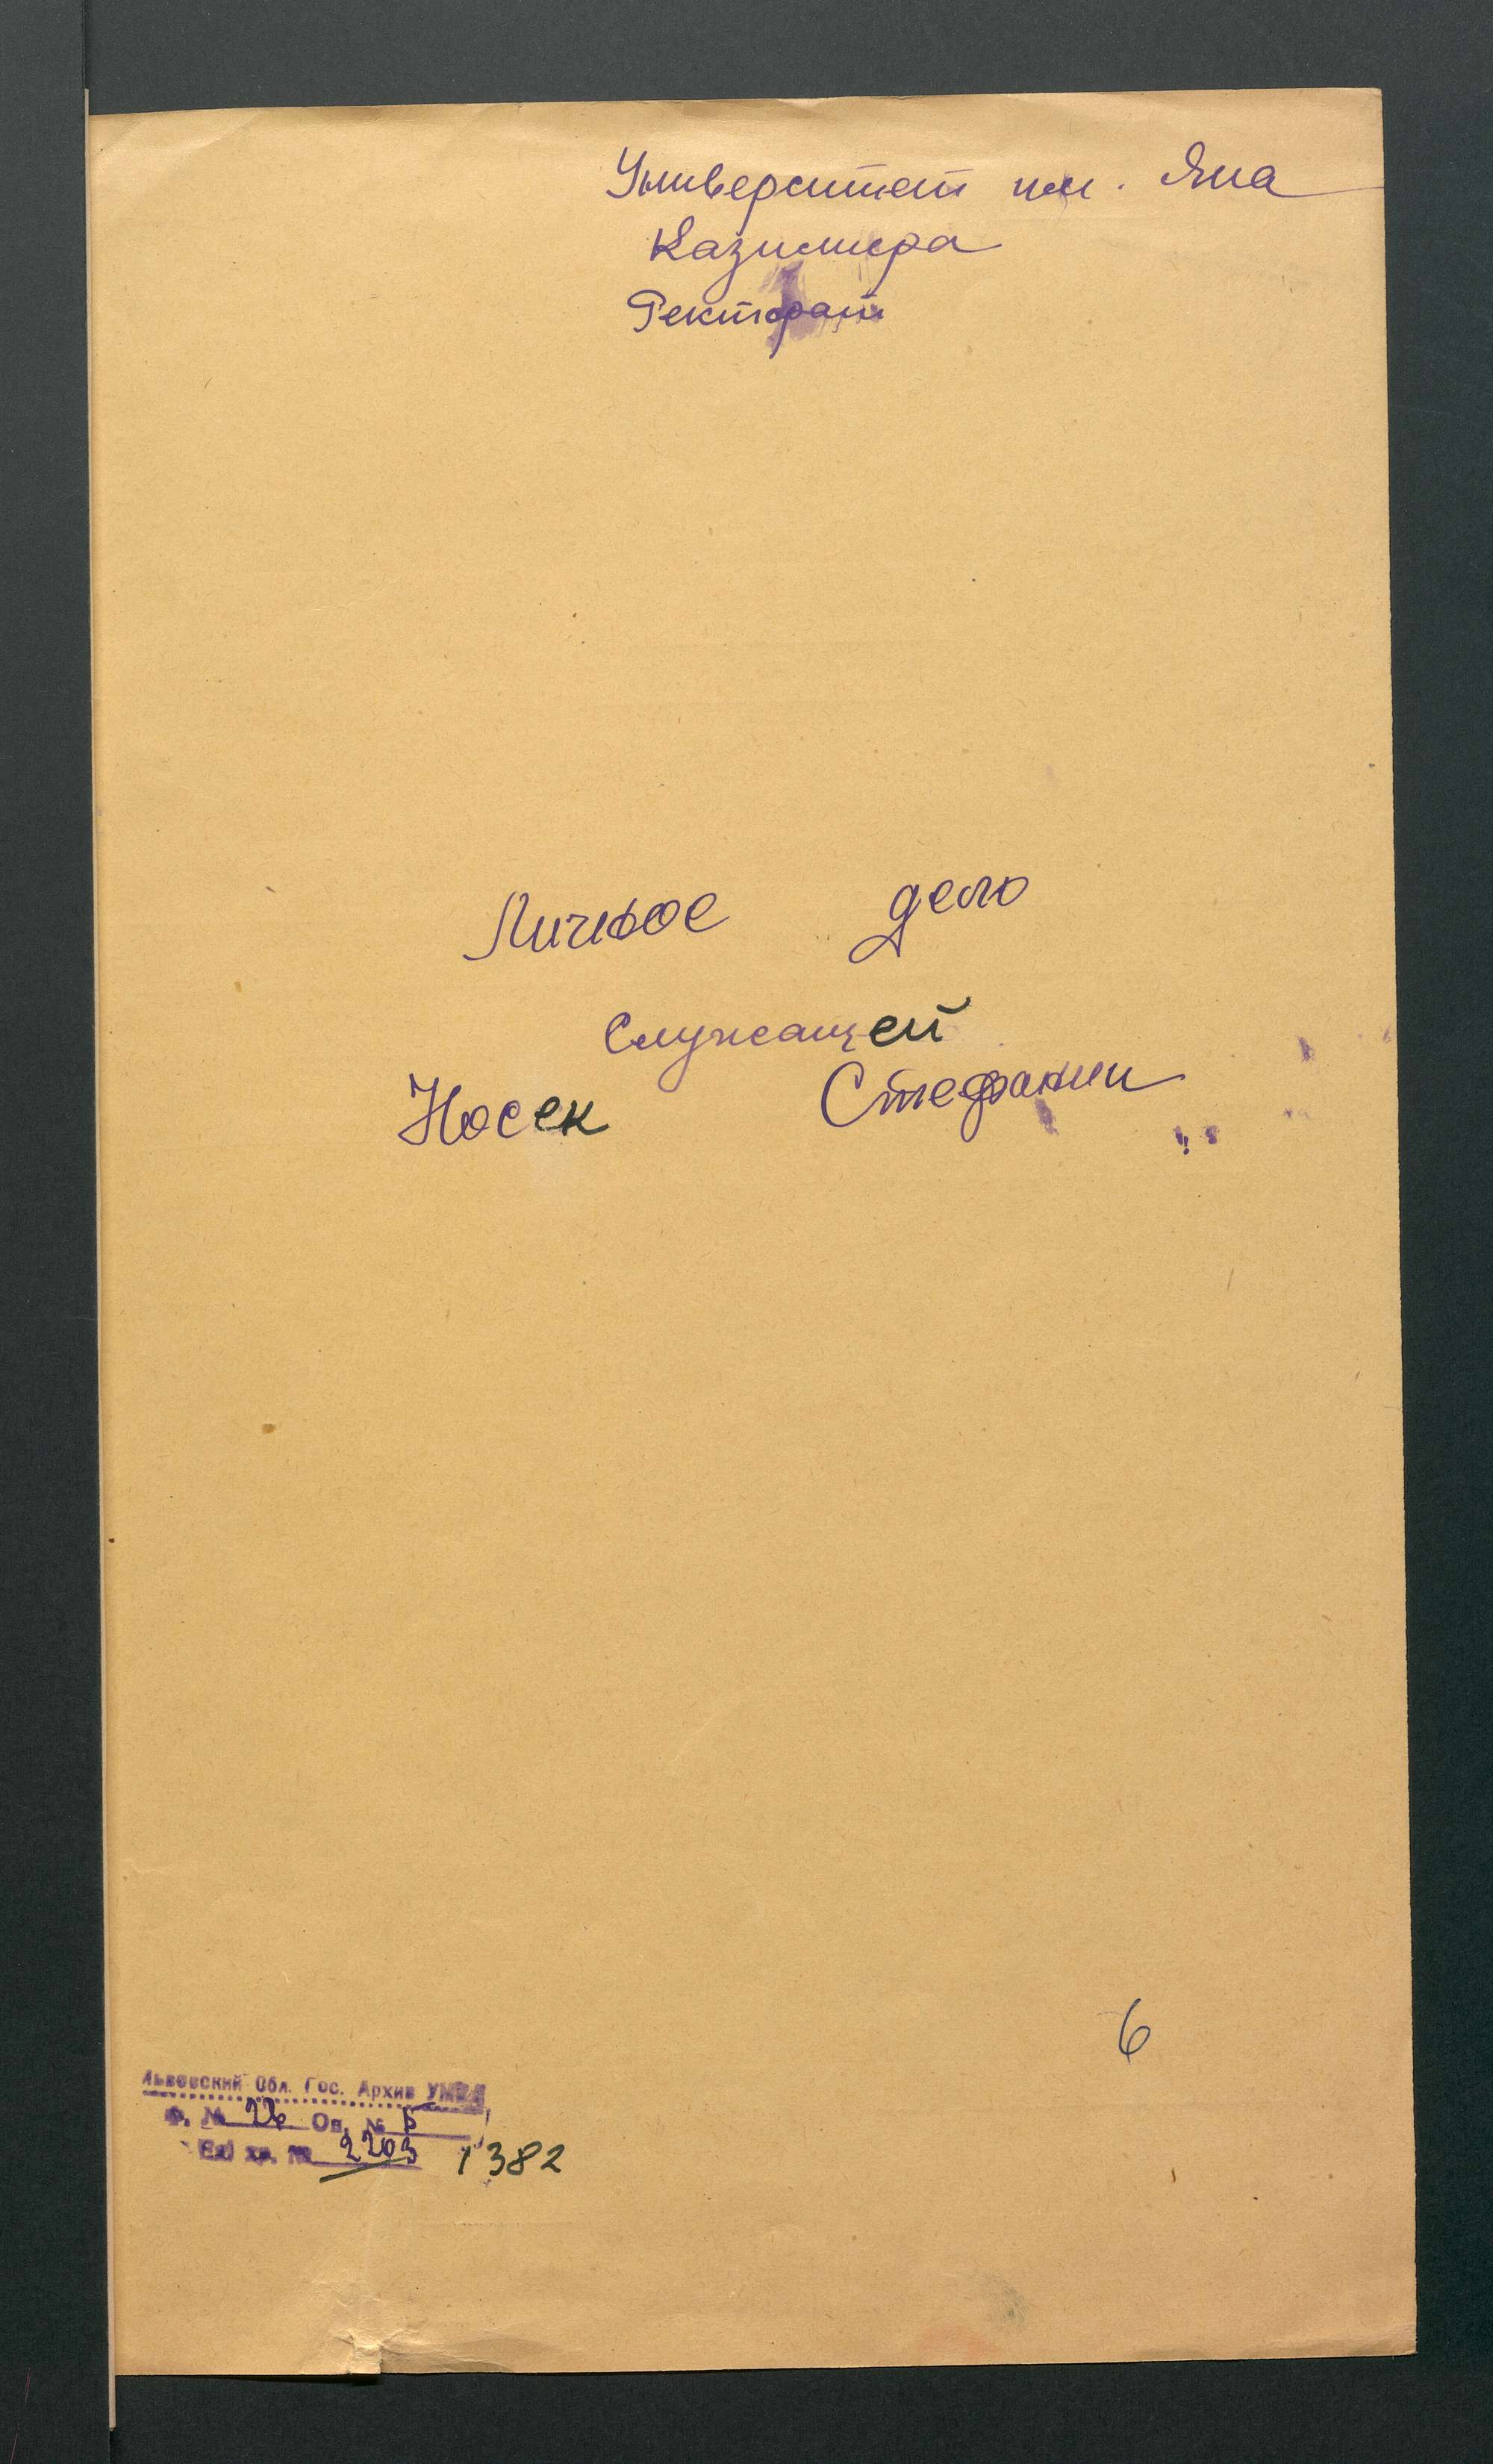 Университет им. Яна
Казимира
Ректорат
Личное дело
служащей
Носек Стефании
6
Львовский Обл. Гос. Архив УМВД
Ф. № 26 Оп. № 5
Ед. хр. № 2203 1382